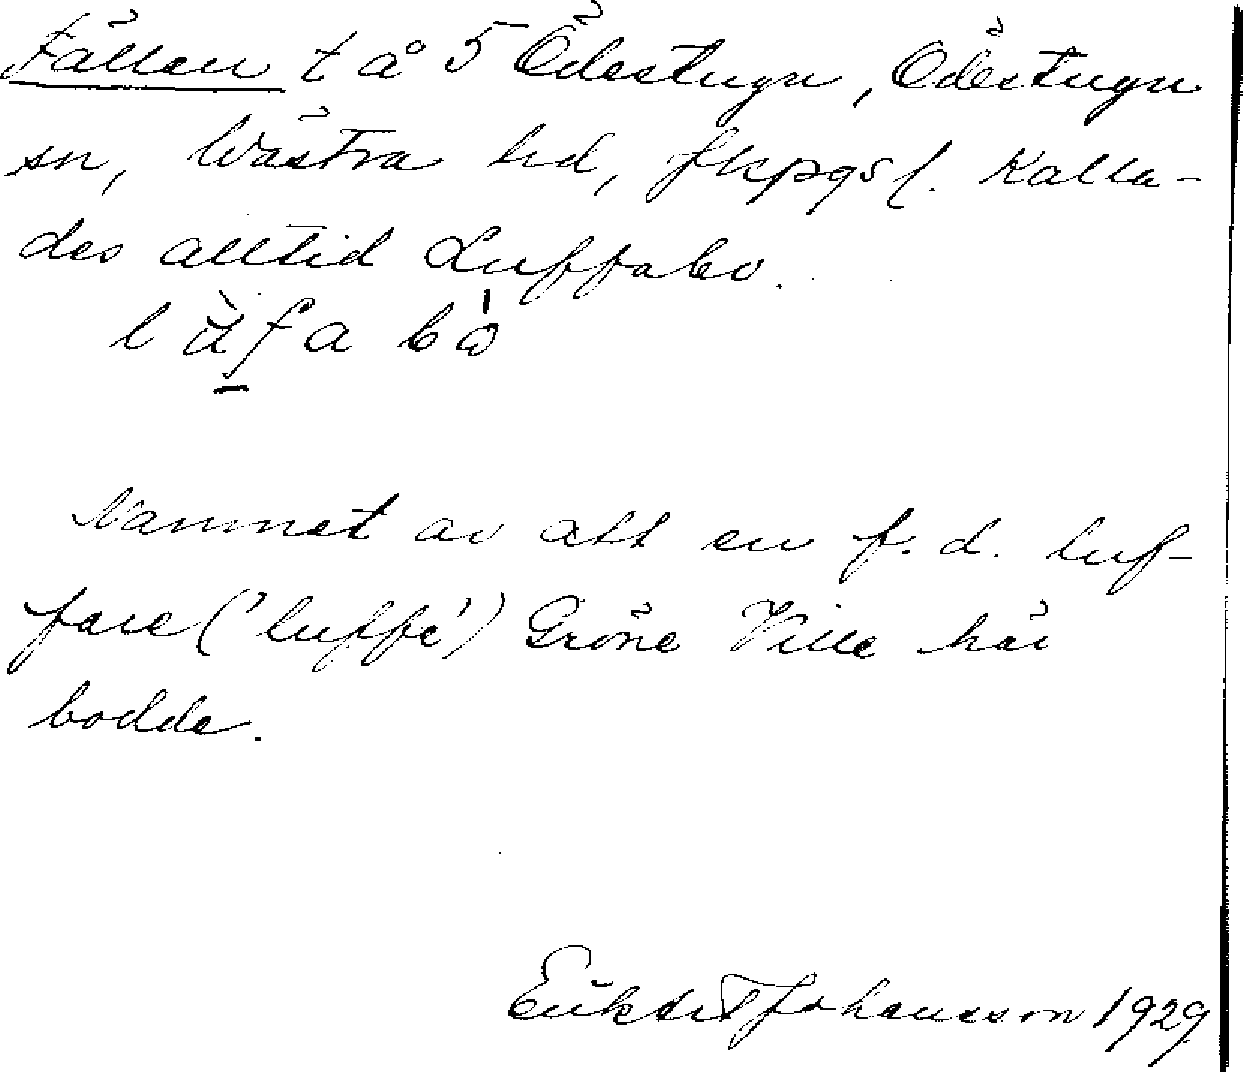 Fällen t å 5 Ödestugu, Ödestugu
sn, Västra hd, Jkpgs l. Kalla-
des alltid Luffabo.
l ù f a b ò
Namnet av att en f. d. luf-
fare ('luffe') Gröne Ville här
bodde.
Johansson 1929